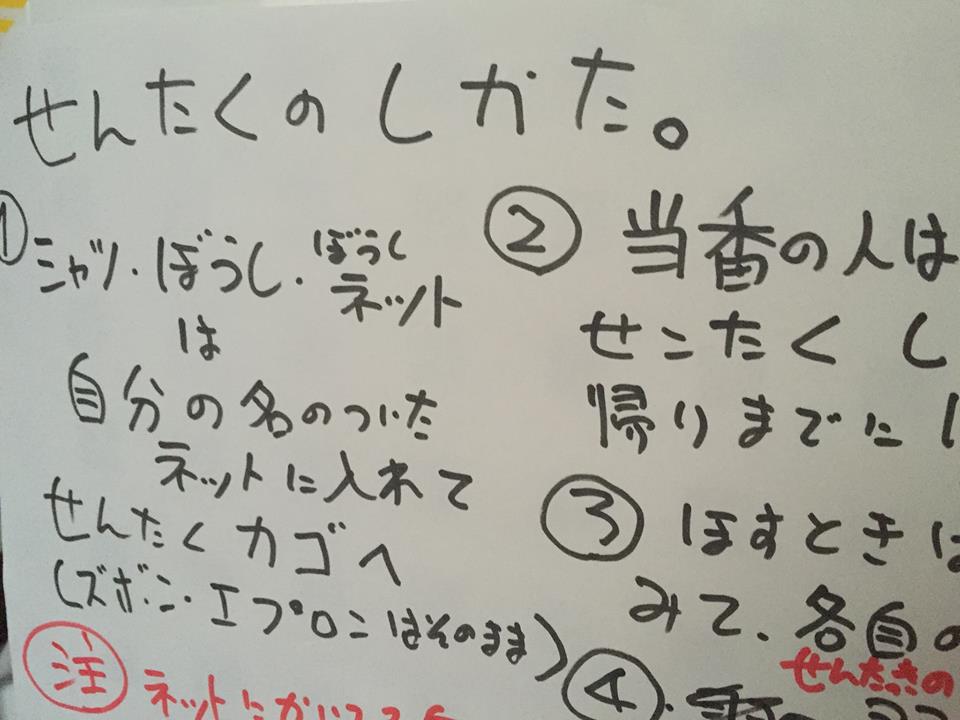 せんたくのしかた。
①シャツ・ぼうし・ぼうしネット
は
自分の名のついた
ネットに入れて
せんたくカゴへ
(ズボン・エプロンはそのまま)
注 ネットに
② 当番の人は
せんたくし
帰りまでに
③ ほすときは
みて、各自の
せんたっきの
④